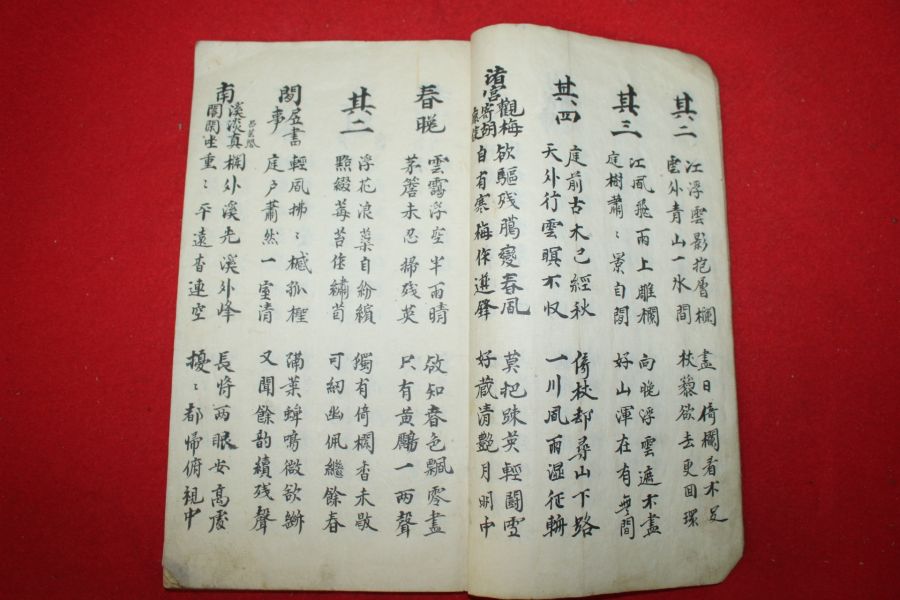 其二
江浮雲影抱層欄 盡日倚欄看不足
雲外青山一水間 杖藜欲去更回環
其三
江風飛雨上雕欄 向晚浮雲遮不盡
庭樹蕭〻景自閑 好山渾在有無間
其四
庭前古木已經秋 倚杖却尋山下路
天外行雲暝不收 一川風雨濕征輈
渚宮觀梅寄胡康侯
欲驅残臘變春風 莫把疎英輕鬪雪
自有寒梅作選鋒 好蔵清艶月明中
春晚
雲靄浮空半雨晴 故知春色飄零盡
茅簷未忍掃残英 只有黄鸝一兩聲
其二
浮花浪蕊自紛繽 獨有倚欄香未歇
點綴莓苔作繡茵 可紉幽佩繼餘春
閑居書事
輕風拂〻撼孤檉 滿葉蟬鳴微欲斷
庭戶蕭然一室清 又聞餘韵續残聲
南溪淡真閣閑坐
欄外溪光溪外峰 長將兩眼安高處
重〻平遠杳連空 擾〻都歸俯視中